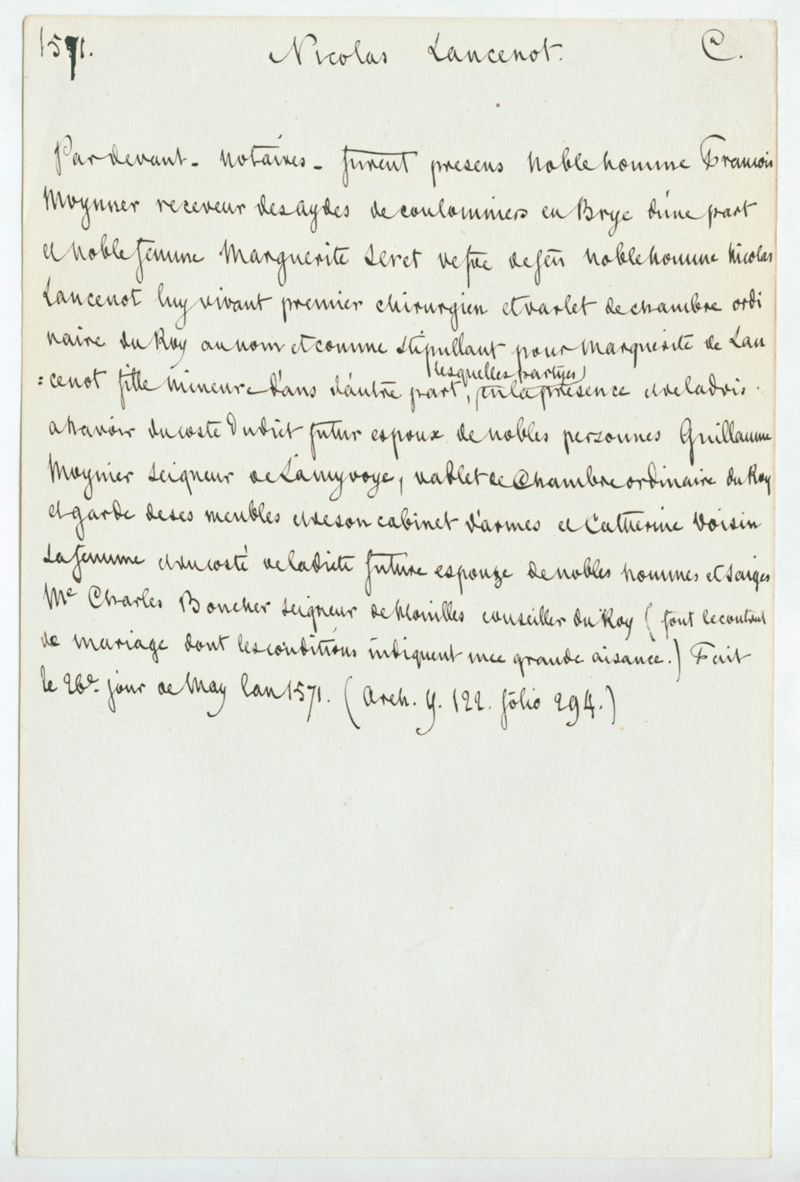 1571. Nicolas Lancenot. C.
Par devant - notaires - furent presens noble homme Francois
Moynner receveur des aydes de coulommiers en Brye d'une part
et noble femme Marguerite Seret vefve de feu noble homme Nicolas
Lancenot luy vivant premier chirurgien et varlet de chambre ordi
naire du Roy au nom et comme stipullant pour Marguerite de Lan
lesquelles partyes
=cenot fille mineure d'ans d'autre part, en la presence et de ladvis
a savoir du costé dudict futur espoux de nobles personnes Guillaume
Moynier seigneur de Lamyvoye, vablet de Chambre ordinaire du Roy
et garde de ses meubles et de son cabinet d'armes et Catherine Voisin
sa femme et du costé de ladicte future espouze de nobles hommes et saiges
Me Charles Boncher seigneur de conseiller du Roy (font le contrat
de mariage dont les conditions indiquent une grande aisance.) Fait
le 26e jour de May lan 1571. (Arch. Y. 122. folio 294.)